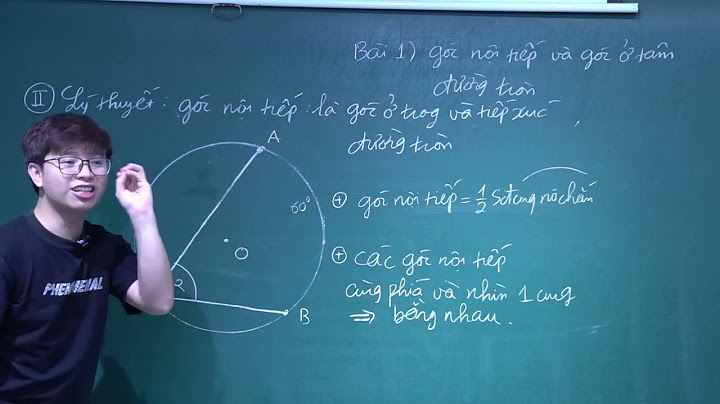 Bài 1) góc nội tiếp và góc ở tâm
đường tròn
II Lý thuyết: góc nội tiếp: là góc ở trog và tiếp xúc
đường tròn
A
60°
O
2
B
+ góc nội tiếp = 1/2 Sđ cung nó chắn
+ các góc nội tiếp
cùng phía và nhìn 1 cung
⇒ bằng nhau.
PHENOMENAL